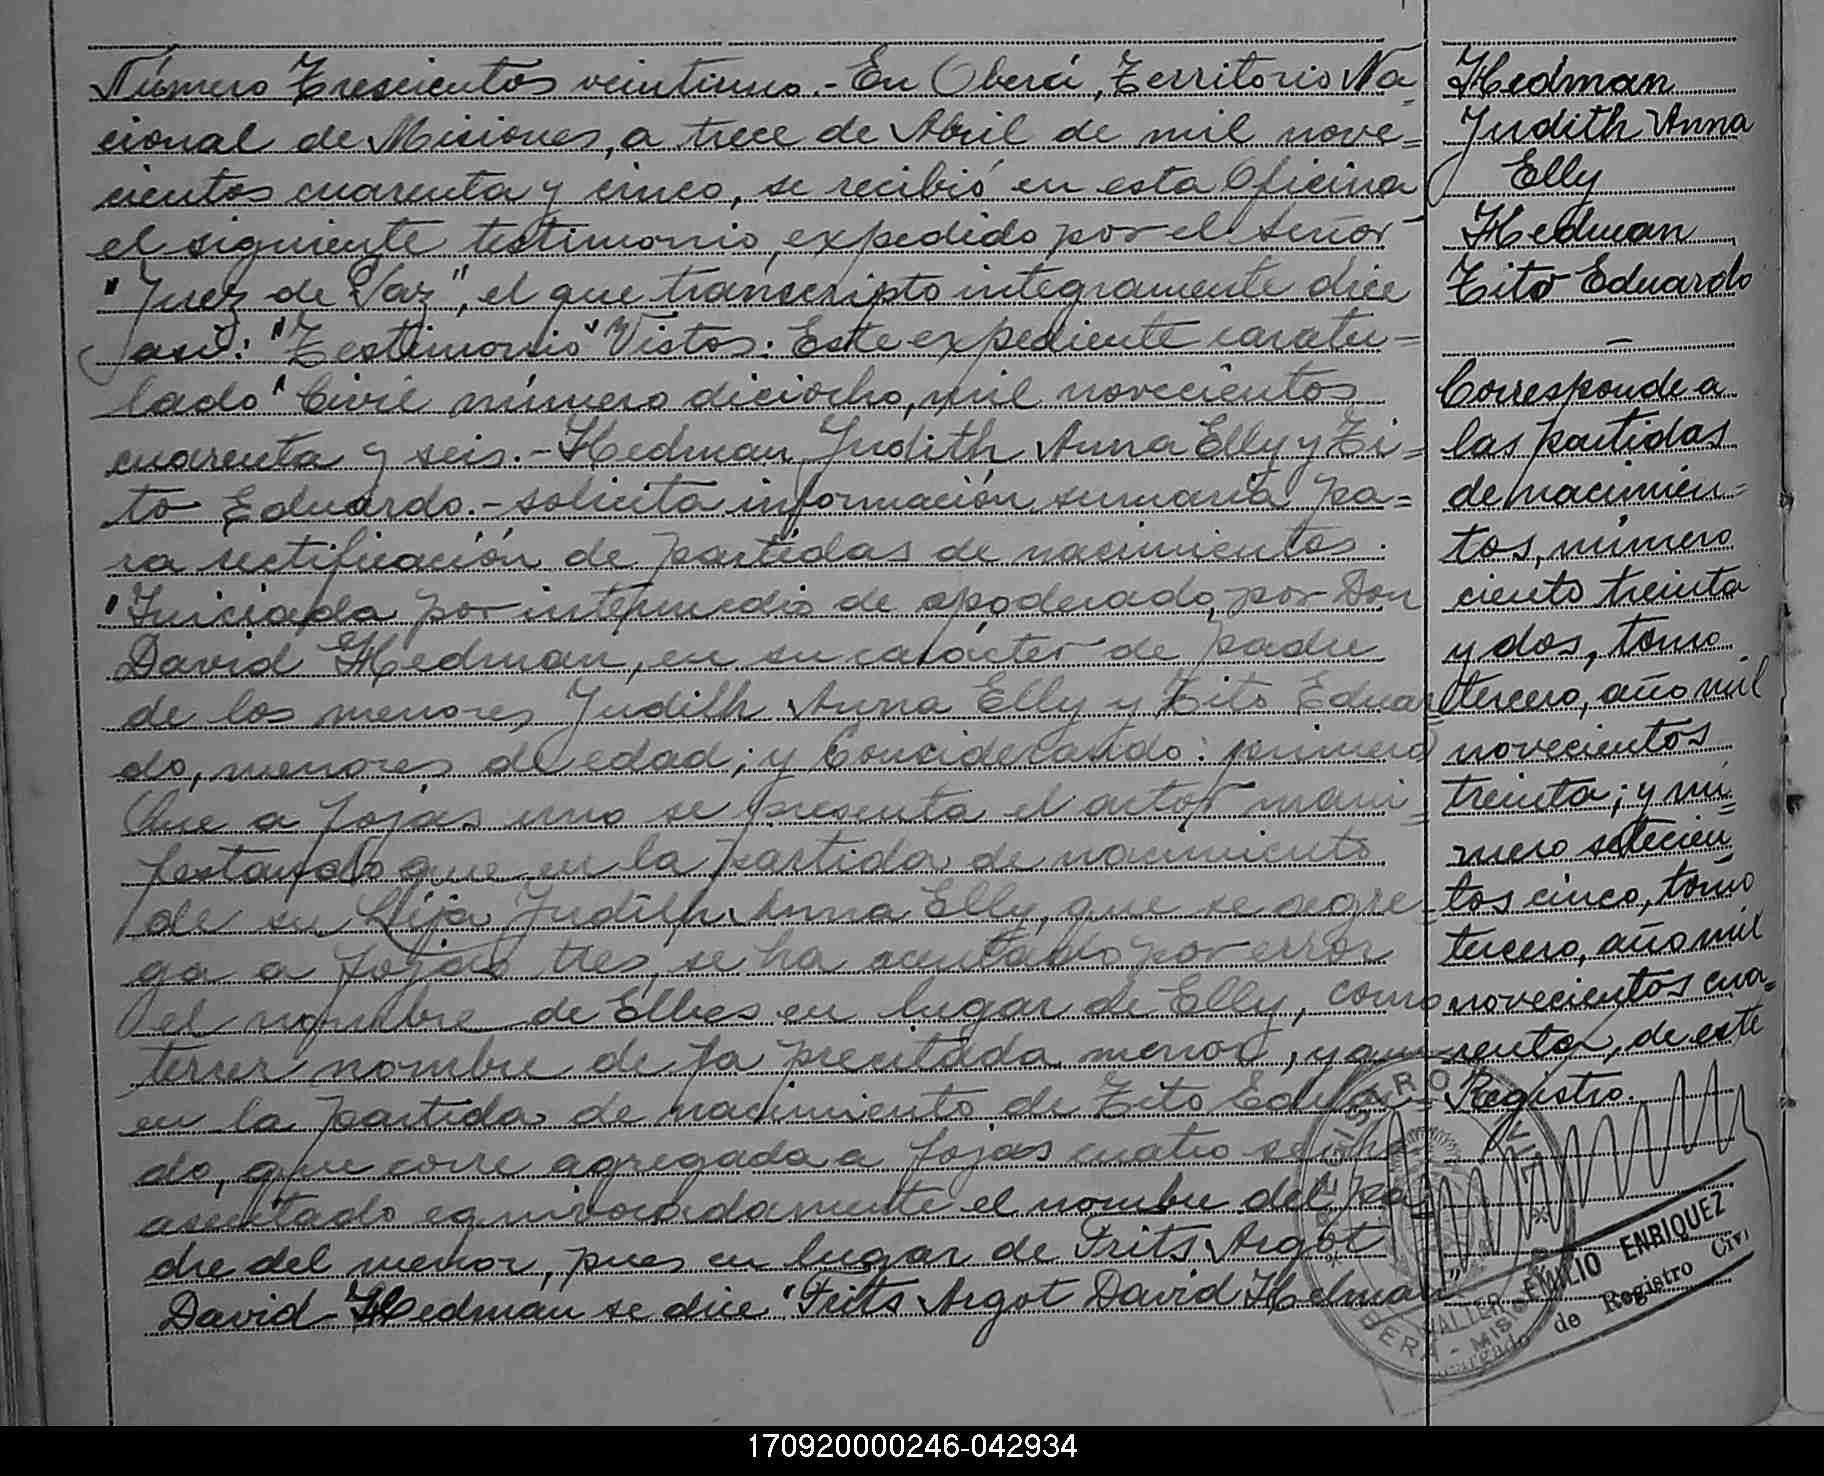 Número Trescientos veintiuno.- En Oberá, Territorio Na=
cional de Misiones, a trece de Abril de mil nove=
cientos cuarenta y cinco, se recibió en esta Oficina
el siguiente testimonio, expedido por el Señor
"Juez de Paz", el que transcripto integramente dice
así: "Testimonio" "Vistos: Este expediente caratu=
lado "Civil número dieciocho, mil novecientos
cuarenta y seis.- Hedman, Judith Anna Elly y Ti=
to Eduardo.- solicita información sumaria pa=
ra rectificación de partidas de nacimientos.
"Iniciada por intermedio de apoderado, por Don
David Hedman, en su carácter de padre
de los menores, Judith Anna Elly y Tito Eduar
do, menores de edad; y Considerando: primero
Que a fojas uno se presenta el actor mani=
festando que en la partida de nacimiento
de su hija Judith Anna Elly, que se agre=
ga a fojas tres, se ha asentado por error
el nombre de Elbes en lugar de Elly, como
tercer nombre de la precitada menor, y que
en la partida de nacimiento de Tito Eduar=
do, que corre agregada a fojas cuatro se ha
asentado equivocadamente el nombre del pa=
dre del menor, pues en lugar de Frits Argot
David Hedman se dice "Frits Argot David Helman"
Hedman
Judith Anna
Elly
Hedman
Tito Eduardo
—
Corresponde a
las partidas
de nacimien=
tos, número
ciento treinta
y dos, tomo
tercero, año mil
novecientos
treinta; y nú=
mero setecien
tos cinco, tomo
tercero, año mil
novecientos cua=
renta, de este
Registro.
REGISTRO CIVIL
OBERÁ - MISIONES
EMILIO ENRIQUEZ
Encargado de Registro Civil
170920000246-042934